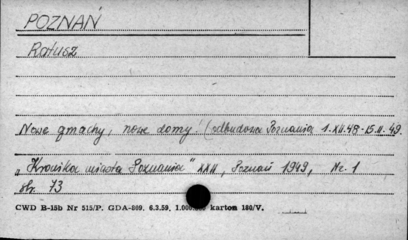 POZNAŃ
Ratusz
Nowe gmachy, nowe domy! (odbudowa Poznania 1.XII.48-15.II.49
„Kronika miasta Poznania" XXII, Poznań 1949, Nr. 1
str. 73
CWD B-15b Nr 515/P. GDA-809. 6.3.59. 1.000.000 karton 180/V.